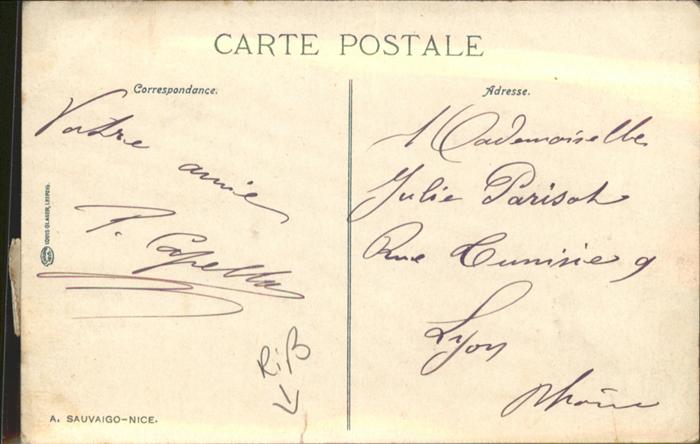 CARTE POSTALE
Correspondance.
Votre amie
P. Capella
LOUIS GLASER, LEIPZIG.
Riß
A. SAUVAIGO-NICE.
Adresse.
Mademoiselle
Julie Parisot
Rue Cunisie 9
Lyon
Rhône